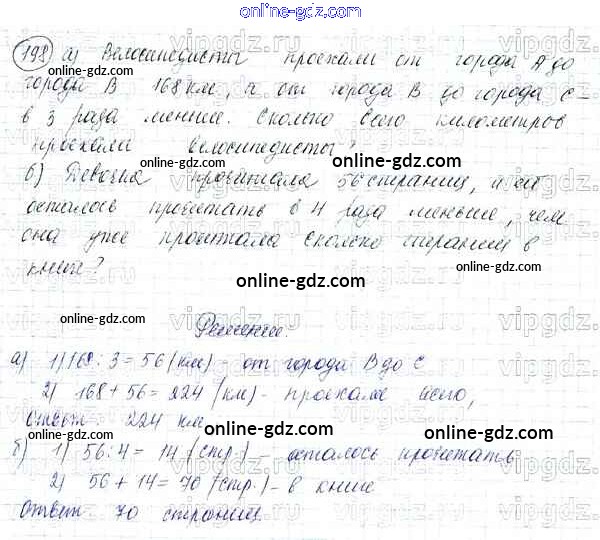 online-gdz.com
198 а) Велосипедисты проехали от города А до
города В 168 км, а от города В до города С -
в 3 раза меньше. Сколько всего километров
проехали велосипедисты?
б) Девочка прочитала 56 страниц, и ей
осталось прочитать в 4 раза меньше, чем
она уже прочитала Сколько страниц в
книге?
Решение.
а) 1) 168 : 3 = 56 (км) - от города В до С
2) 168 + 56 = 224 (км) - проехали всего,
Ответ: 224 км
б) 1) 56 : 4 = 14 (стр.) - осталось прочитать
2) 56 + 14 = 70 (стр.) - в книге
Ответ 70 страниц.
online-gdz.com
online-gdz.com
online-gdz.com
online-gdz.com
online-gdz.com
online-gdz.com
online-gdz.com
online-gdz.com
online-gdz.com
online-gdz.com
online-gdz.com
vipgdz.com
vipgdz.com
vipgdz.com